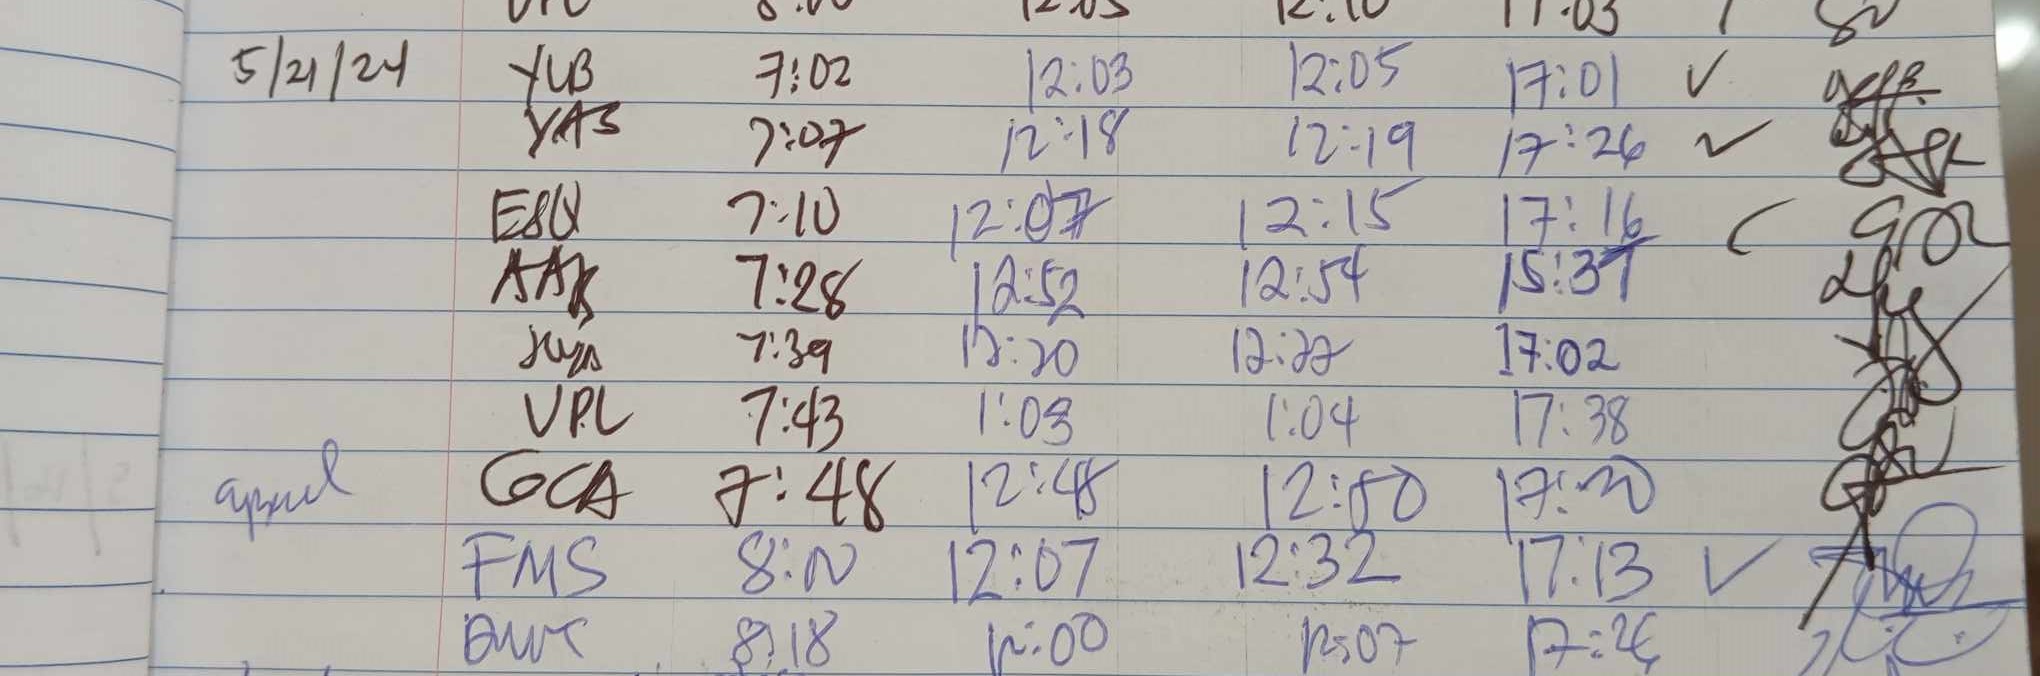 5/21/24 YLB 7:02 12:03 12:05 17:01 ✓
YAS 7:07 12:18 12:19 17:26 ✓
ESQ 7:10 12:07 12:15 17:16
AAB 7:28 12:52 12:54 15:37
7:39 12:20 12:22 17:02
VPL 7:43 1:03 1:04 17:38
GCA 7:48 12:48 12:50 17:20
FMS 8:00 12:07 12:32 17:13 ✓
8:18 12:00 12:07 17:26